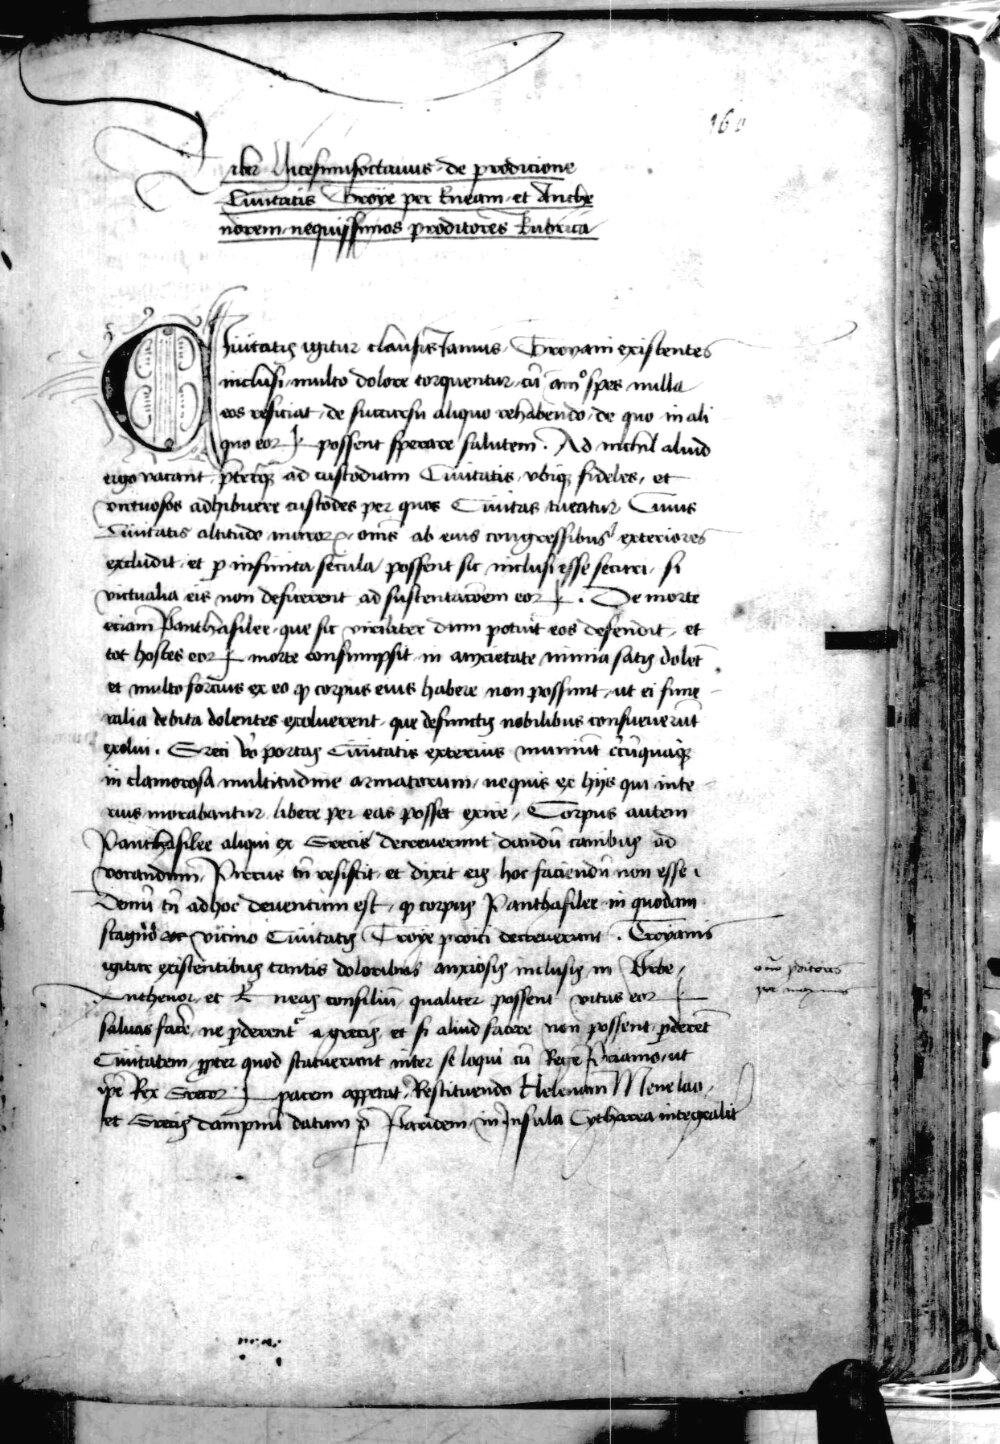 160
Liber Vicesimisoctavus de prodicione
Civitatis Troye per Eneam et Anthe
norem nequissimos proditores Rubrica
Civitatis igitur clausis Ianuis Troyani existentes
inclusi multo dolore torquentur cu amo spes nulla
eos reficiat de succursu aliquo rehabendo de quo in ali
quo eorꝝ possent sperare salutem. Ad nichil aliud
ergo vacant pterqꝫ ad custodiam Civitatis ubiqꝫ fideles et
virtuosos adhibuere custodes per quos Civitas tueatur Cuius
Civitatis altitudo murorꝝ oms ab eius congressibus exteriores
excludit et p infinita secula possent sic inclusi esse securi si
victualia eis non deficerent ad sustentacoem eorꝝ. De morte
eciam Panthasilee que sic viriliter dum potuit eos defendit et
tot hostes eorꝝ morte consumpsit in anxietate nimia satis dolet
et multo forcius ex eo qꝫ corpus eius habere non possunt ut ei fune
ralia debita dolentes exoluerent que defunctis nobilibus consueverut
exolui. Greci vo portas Civitatis exterius muniut circuquaqꝫ
in clamorosa multitudine armatorum ne quis ex hijs qui inte
rius morabantur libere per eas posset exire Corpus autem
Panthasilee aliqui ex Grecis decreverunt dandu canibus ad
vorandum Pirrus tn resistit et dixit eis hoc faciendu non esse
Demu tn ad hoc deventum est qꝫ corpus Panthasilee in quodam
stagno vicino Civitatis Troye proici decreverunt. Troyanis
igitur existentibus tantis doloribus anxiosis inclusis in Urbe
Anthenor et Eneas consiliu qualiter possent vitas eorꝝ
salvas facere ne pderent a grecis et si aliud facere non possent pderet
Civitatem ppter quod statuerunt inter se loqui cu Rege Priamo ut
ipe Rex Grecorꝝ pacem appetat Restituendo Helenam Menelao
et Grecis dampnu datum p Paridem in Insula Cytharea integralit